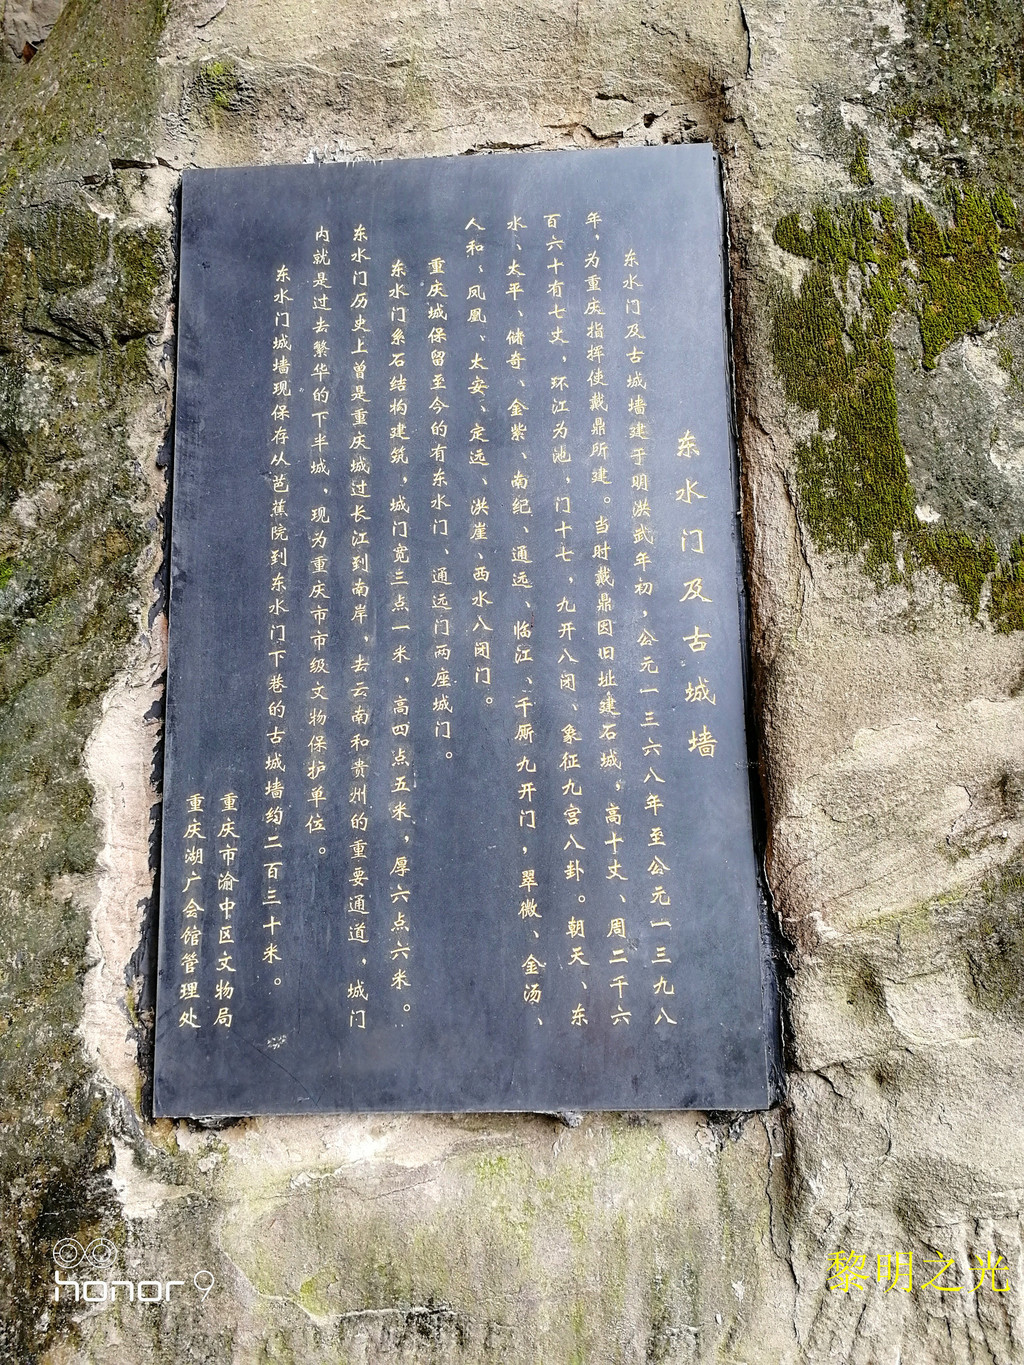 东水门及古城墙
东水门及古城墙建于明洪武年初，公元一三六八年至公元一三九八
年，为重庆指挥使戴鼎所建。当时戴鼎因旧址建石城，高十丈、周二千六
百六十有七丈，环江为池，门十七，九开八闭、象征九宫八卦。朝天、东
水、太平、储奇、金紫、南纪、通远、临江、千厮九开门，翠微、金汤、
人和、凤凰、太安、定远、洪崖、西水八闭门。
重庆城保留至今的有东水门、通远门两座城门。
东水门系石结构建筑，城门宽三点一米，高四点五米，厚六点六米。
东水门历史上曾是重庆城过长江到南岸，去云南和贵州的重要通道，城门
内就是过去繁华的下半城，现为重庆市市级文物保护单位。
东水门城墙现保存从芭蕉院到东水门下巷的古城墙约二百三十米。
重庆市渝中区文物局
重庆湖广会馆管理处
honor 9
黎明之光